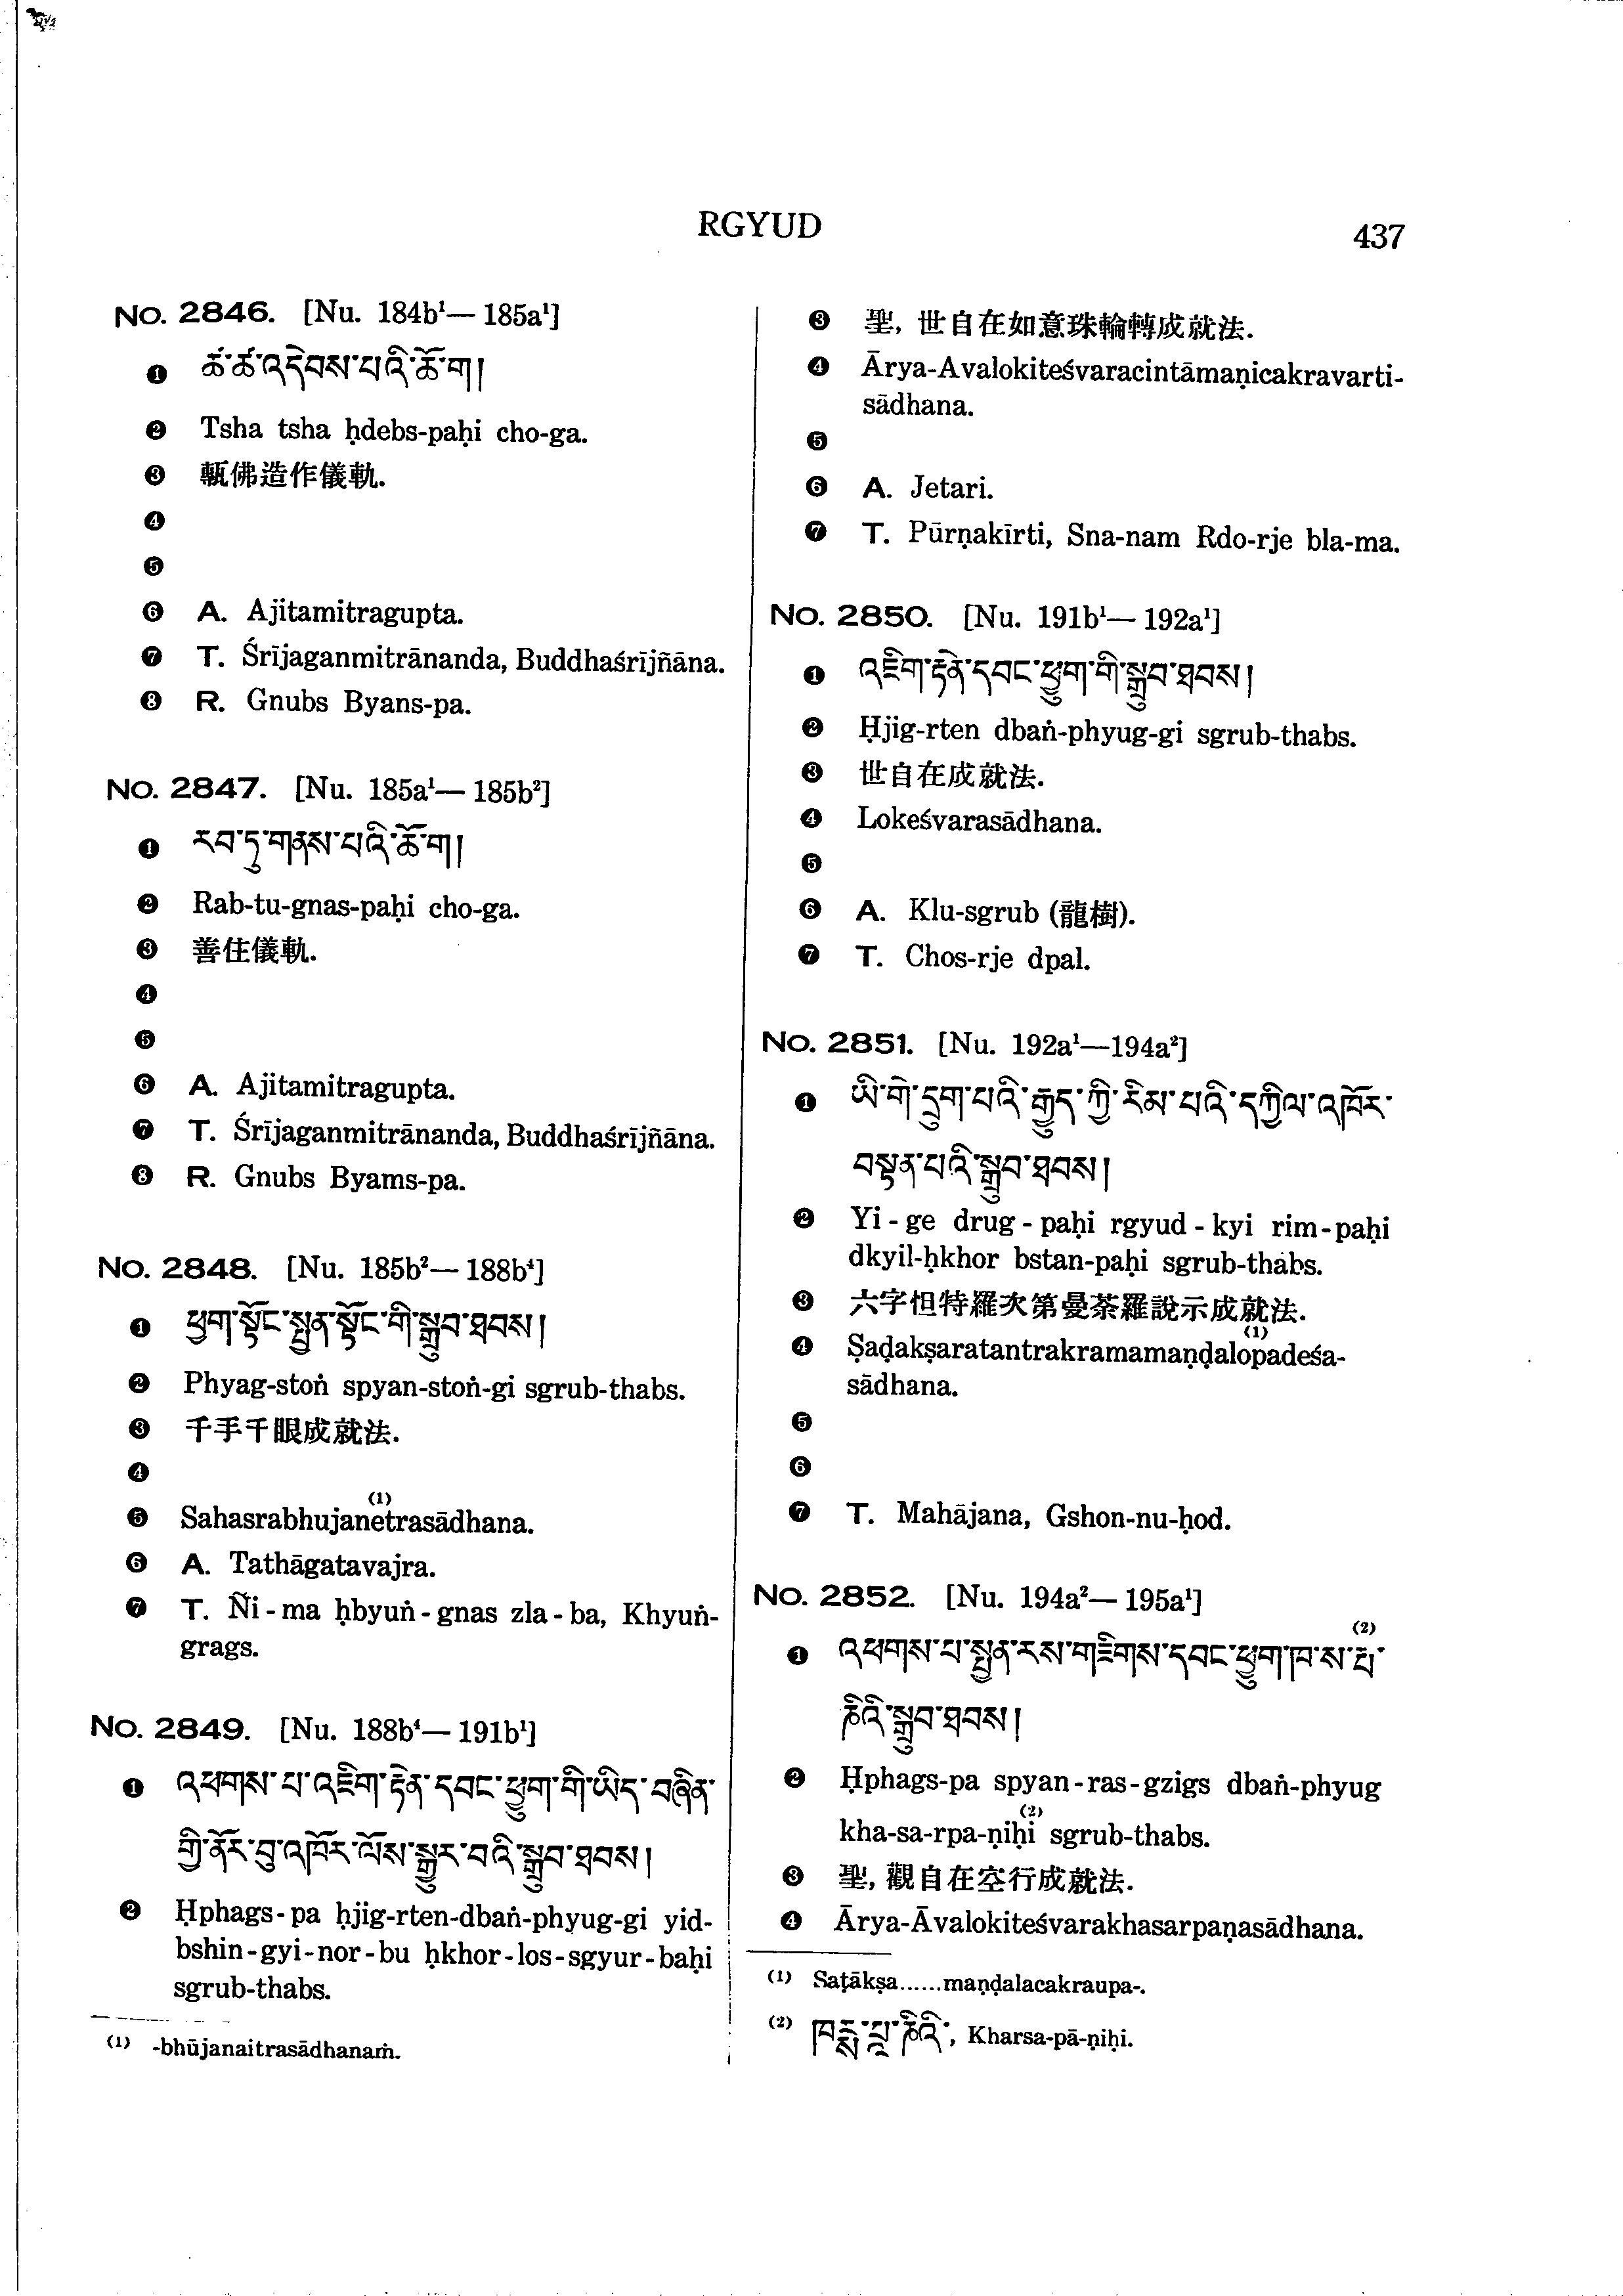 RGYUD
437
No. 2846. [Nu. 184b¹— 185a¹]
❶ ཚ་ཚ་འདེབས་པའི་ཆོ་ག།
❷ Tsha tsha ḥdebs-paḥi cho-ga.
❸ 甎佛造作儀軌.
❹
❺
❻ A. Ajitamitragupta.
❼ T. Śrījaganmitrānanda, Buddhaśrījñāna.
❽ R. Gnubs Byans-pa.
No. 2847. [Nu. 185a¹— 185b²]
❶ རབ་ཏུ་གནས་པའི་ཆོ་ག།
❷ Rab-tu-gnas-paḥi cho-ga.
❸ 善住儀軌.
❹
❺
❻ A. Ajitamitragupta.
❼ T. Śrījaganmitrānanda, Buddhaśrījñāna.
❽ R. Gnubs Byams-pa.
No. 2848. [Nu. 185b²— 188b⁴]
❶ ཕྱག་སྟོང་སྤྱན་སྟོང་གི་སྒྲུབ་ཐབས།
❷ Phyag-stoṅ spyan-stoṅ-gi sgrub-thabs.
❸ 千手千眼成就法.
❹
(1)
❺ Sahasrabhujanetrasādhana.
❻ A. Tathāgatavajra.
❼ T. Ñi-ma ḥbyuṅ-gnas zla-ba, Khyuṅ-
grags.
No. 2849. [Nu. 188b⁴— 191b¹]
❶ འཕགས་པ་འཇིག་རྟེན་དབང་ཕྱུག་གི་ཡིད་བཞིན་
གྱི་ནོར་བུ་འཁོར་ལོས་སྒྱུར་བའི་སྒྲུབ་ཐབས།
❷ Ḥphags-pa ḥjig-rten-dbaṅ-phyug-gi yid-
bshin-gyi-nor-bu ḥkhor-los-sgyur-baḥi
sgrub-thabs.
(1) -bhūjanaitrasādhanaṁ.
❸ 聖, 世自在如意珠輪轉成就法.
❹ Ārya-Avalokiteśvaracintāmaṇicakravarti-
sādhana.
❺
❻ A. Jetari.
❼ T. Pūrṇakīrti, Sna-nam Rdo-rje bla-ma.
No. 2850. [Nu. 191b¹— 192a¹]
❶ འཇིག་རྟེན་དབང་ཕྱུག་གི་སྒྲུབ་ཐབས།
❷ Ḥjig-rten dbaṅ-phyug-gi sgrub-thabs.
❸ 世自在成就法.
❹ Lokeśvarasādhana.
❺
❻ A. Klu-sgrub (龍樹).
❼ T. Chos-rje dpal.
No. 2851. [Nu. 192a¹—194a²]
❶ ཡི་གེ་དྲུག་པའི་རྒྱུད་ཀྱི་རིམ་པའི་དཀྱིལ་འཁོར་
བསྟན་པའི་སྒྲུབ་ཐབས།
❷ Yi-ge drug-paḥi rgyud-kyi rim-paḥi
dkyil-ḥkhor bstan-paḥi sgrub-thabs.
❸ 六字怛特羅次第曼荼羅說示成就法.
(1)
❹ Ṣaḍakṣaratantrakramamaṇḍalopadeśa-
sādhana.
❺
❻
❼ T. Mahājana, Gshon-nu-ḥod.
No. 2852. [Nu. 194a²— 195a¹]
(2)
❶ འཕགས་པ་སྤྱན་རས་གཟིགས་དབང་ཕྱུག་ཁ་ས་རྤ་
ཎིའི་སྒྲུབ་ཐབས།
❷ Ḥphags-pa spyan-ras-gzigs dbaṅ-phyug
(2)
kha-sa-rpa-ṇiḥi sgrub-thabs.
❸ 聖, 觀自在空行成就法.
❹ Ārya-Āvalokiteśvarakhasarpaṇasādhana.
(1) Saṭākṣa......maṇḍalacakraupa-.
(2) Kharsa-pā-ṇiḥi.